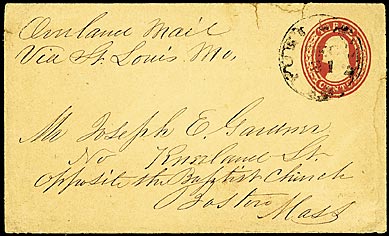 Overland Mail
Via St. Louis Mo.
Mr Joseph E. Gardner
No Kneeland St.
Opposite the Baptist Church
Boston
Mass